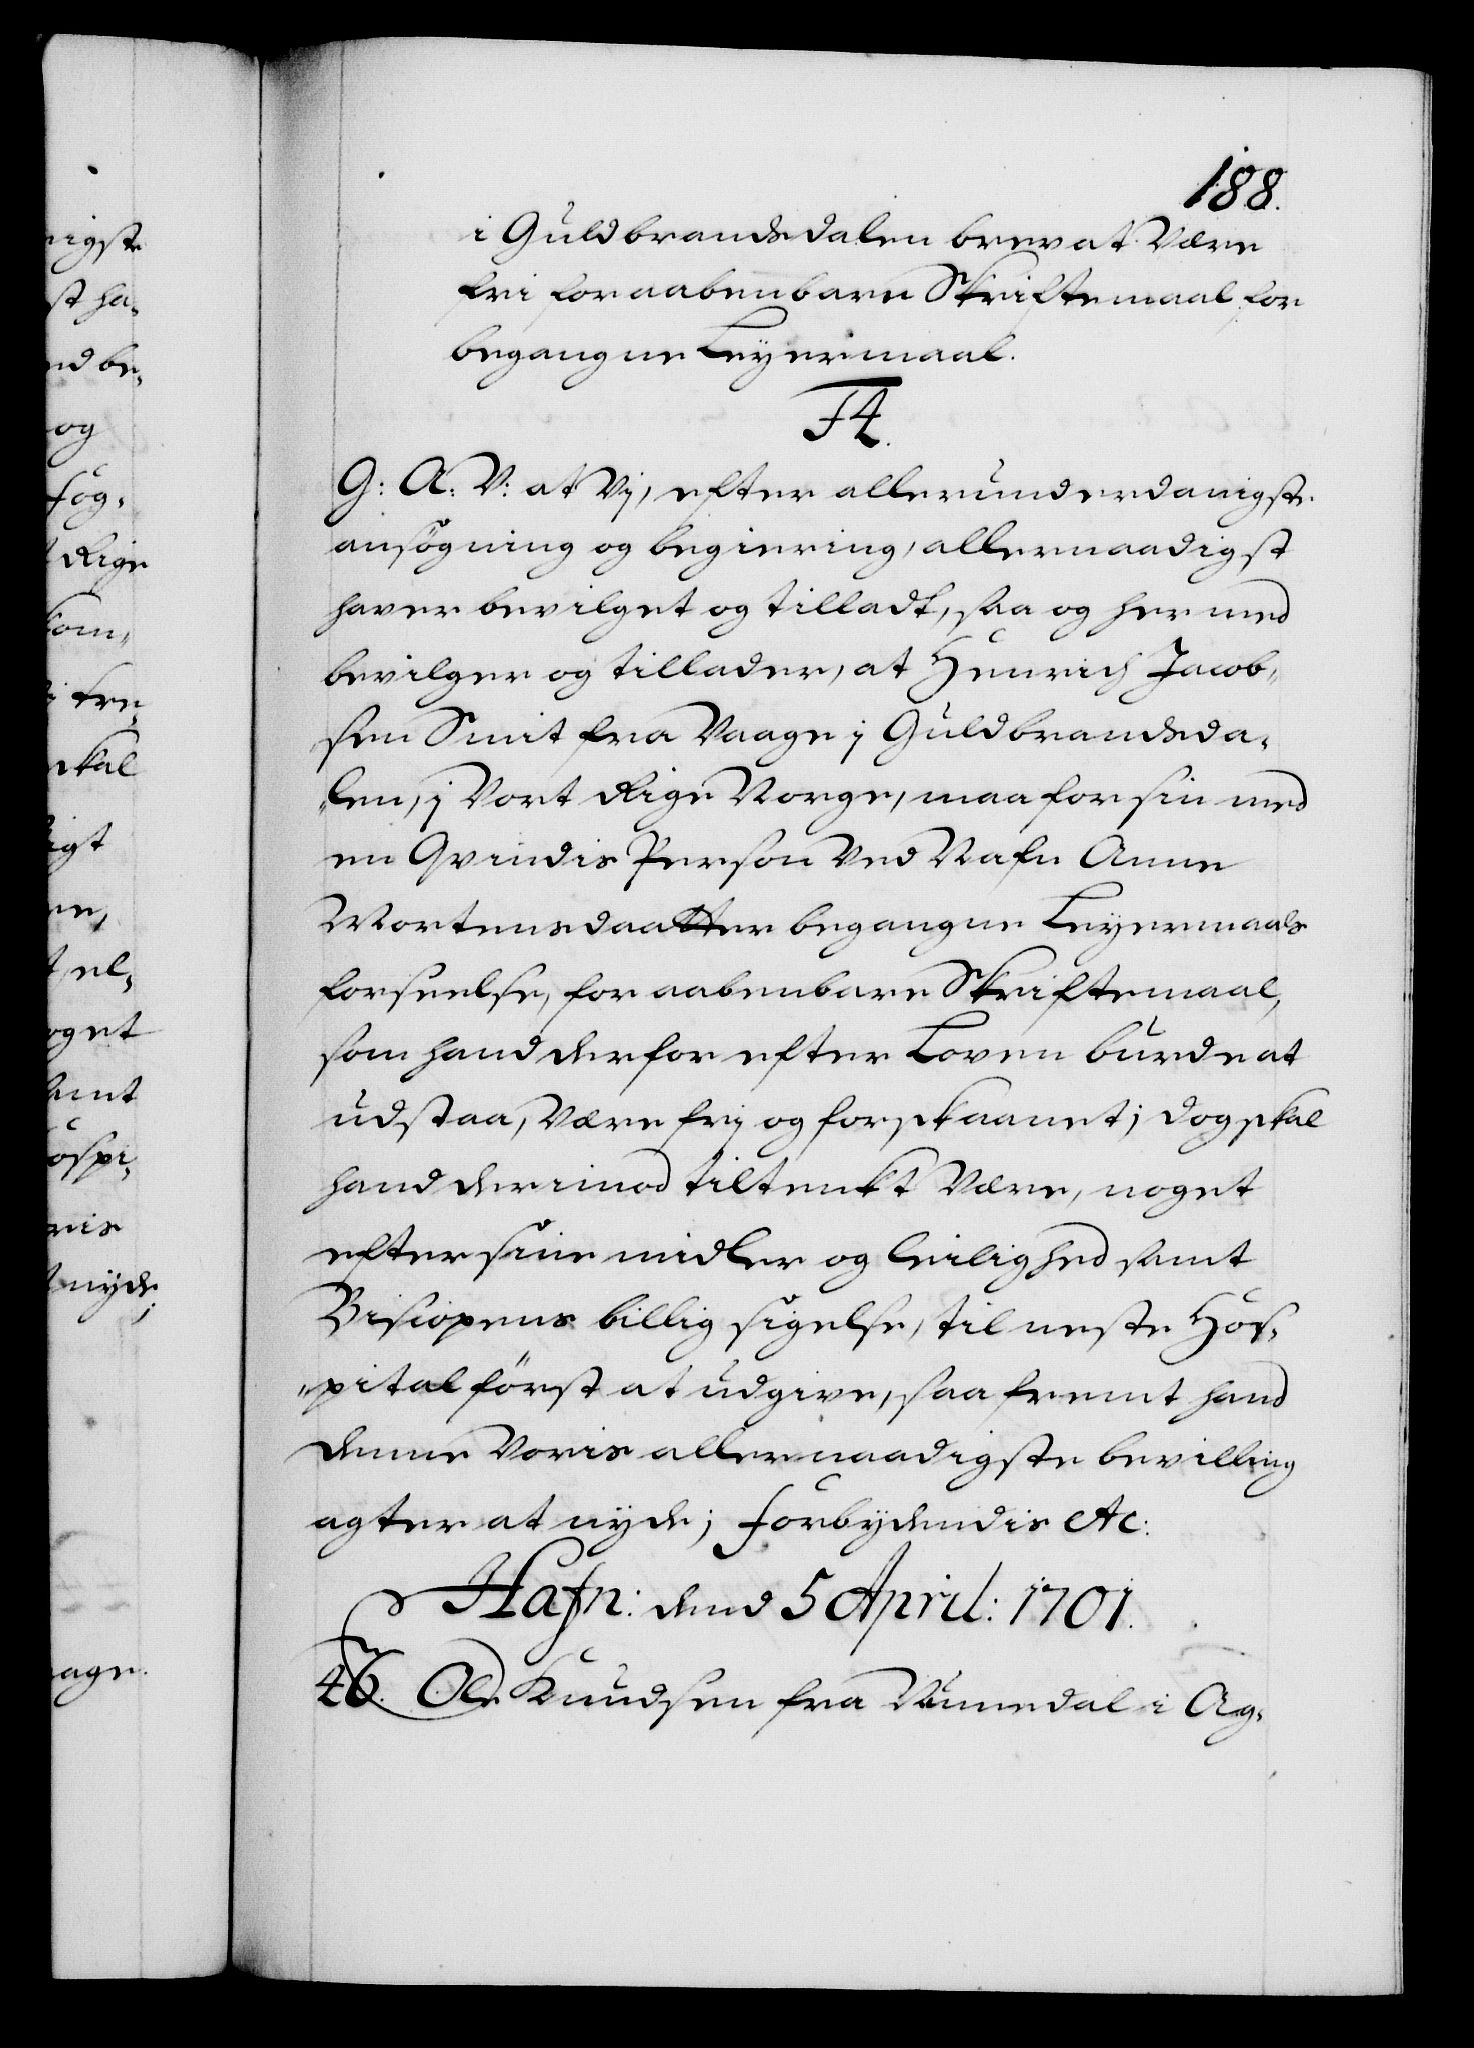 188.
i Guldbrandsdalen brev at Være
fri for aabenbare Skriftemaal for
begangne Leyermaal.
F4.
G: A: V: at Vj, efter allerunderdanigste
ansögning og begiering, allernaadigst
haver bevilget og tilladt, saa og her med
bevilger og tillader, at Henrich Jacob-
sen Smit fra Vaage j Guldbrandsda-
len, j Vort Rige Norge, maa for sin med
en Qvindis Person Ved Nafn Anne
Mortensdaatter begangne Leyermaals
forseelse, for aabenbare Skriftemaal,
som hand derfor efter Loven burde at
udstaa, Være frj og forskaanet; dog skal
hand derimod tiltenkt Være, noget
efter sine midler og leilighed samt
Bisiopens billig sigelse, til neste Hos-
pital först at udgive, saafremt hand
denne Voris allernaadigste bevilling
agter at nyde; Forbydendis etc:
Hafn: dend 5 April: 1701.
46. Ole Knudsen fra Numedal i Ag-
nigste
st ha-
nd be-
og
fog-
Rige
kom-
i tre
skal
igt
re,
t, el-
oget
samt
Hospi-
ris
nyde;
age.